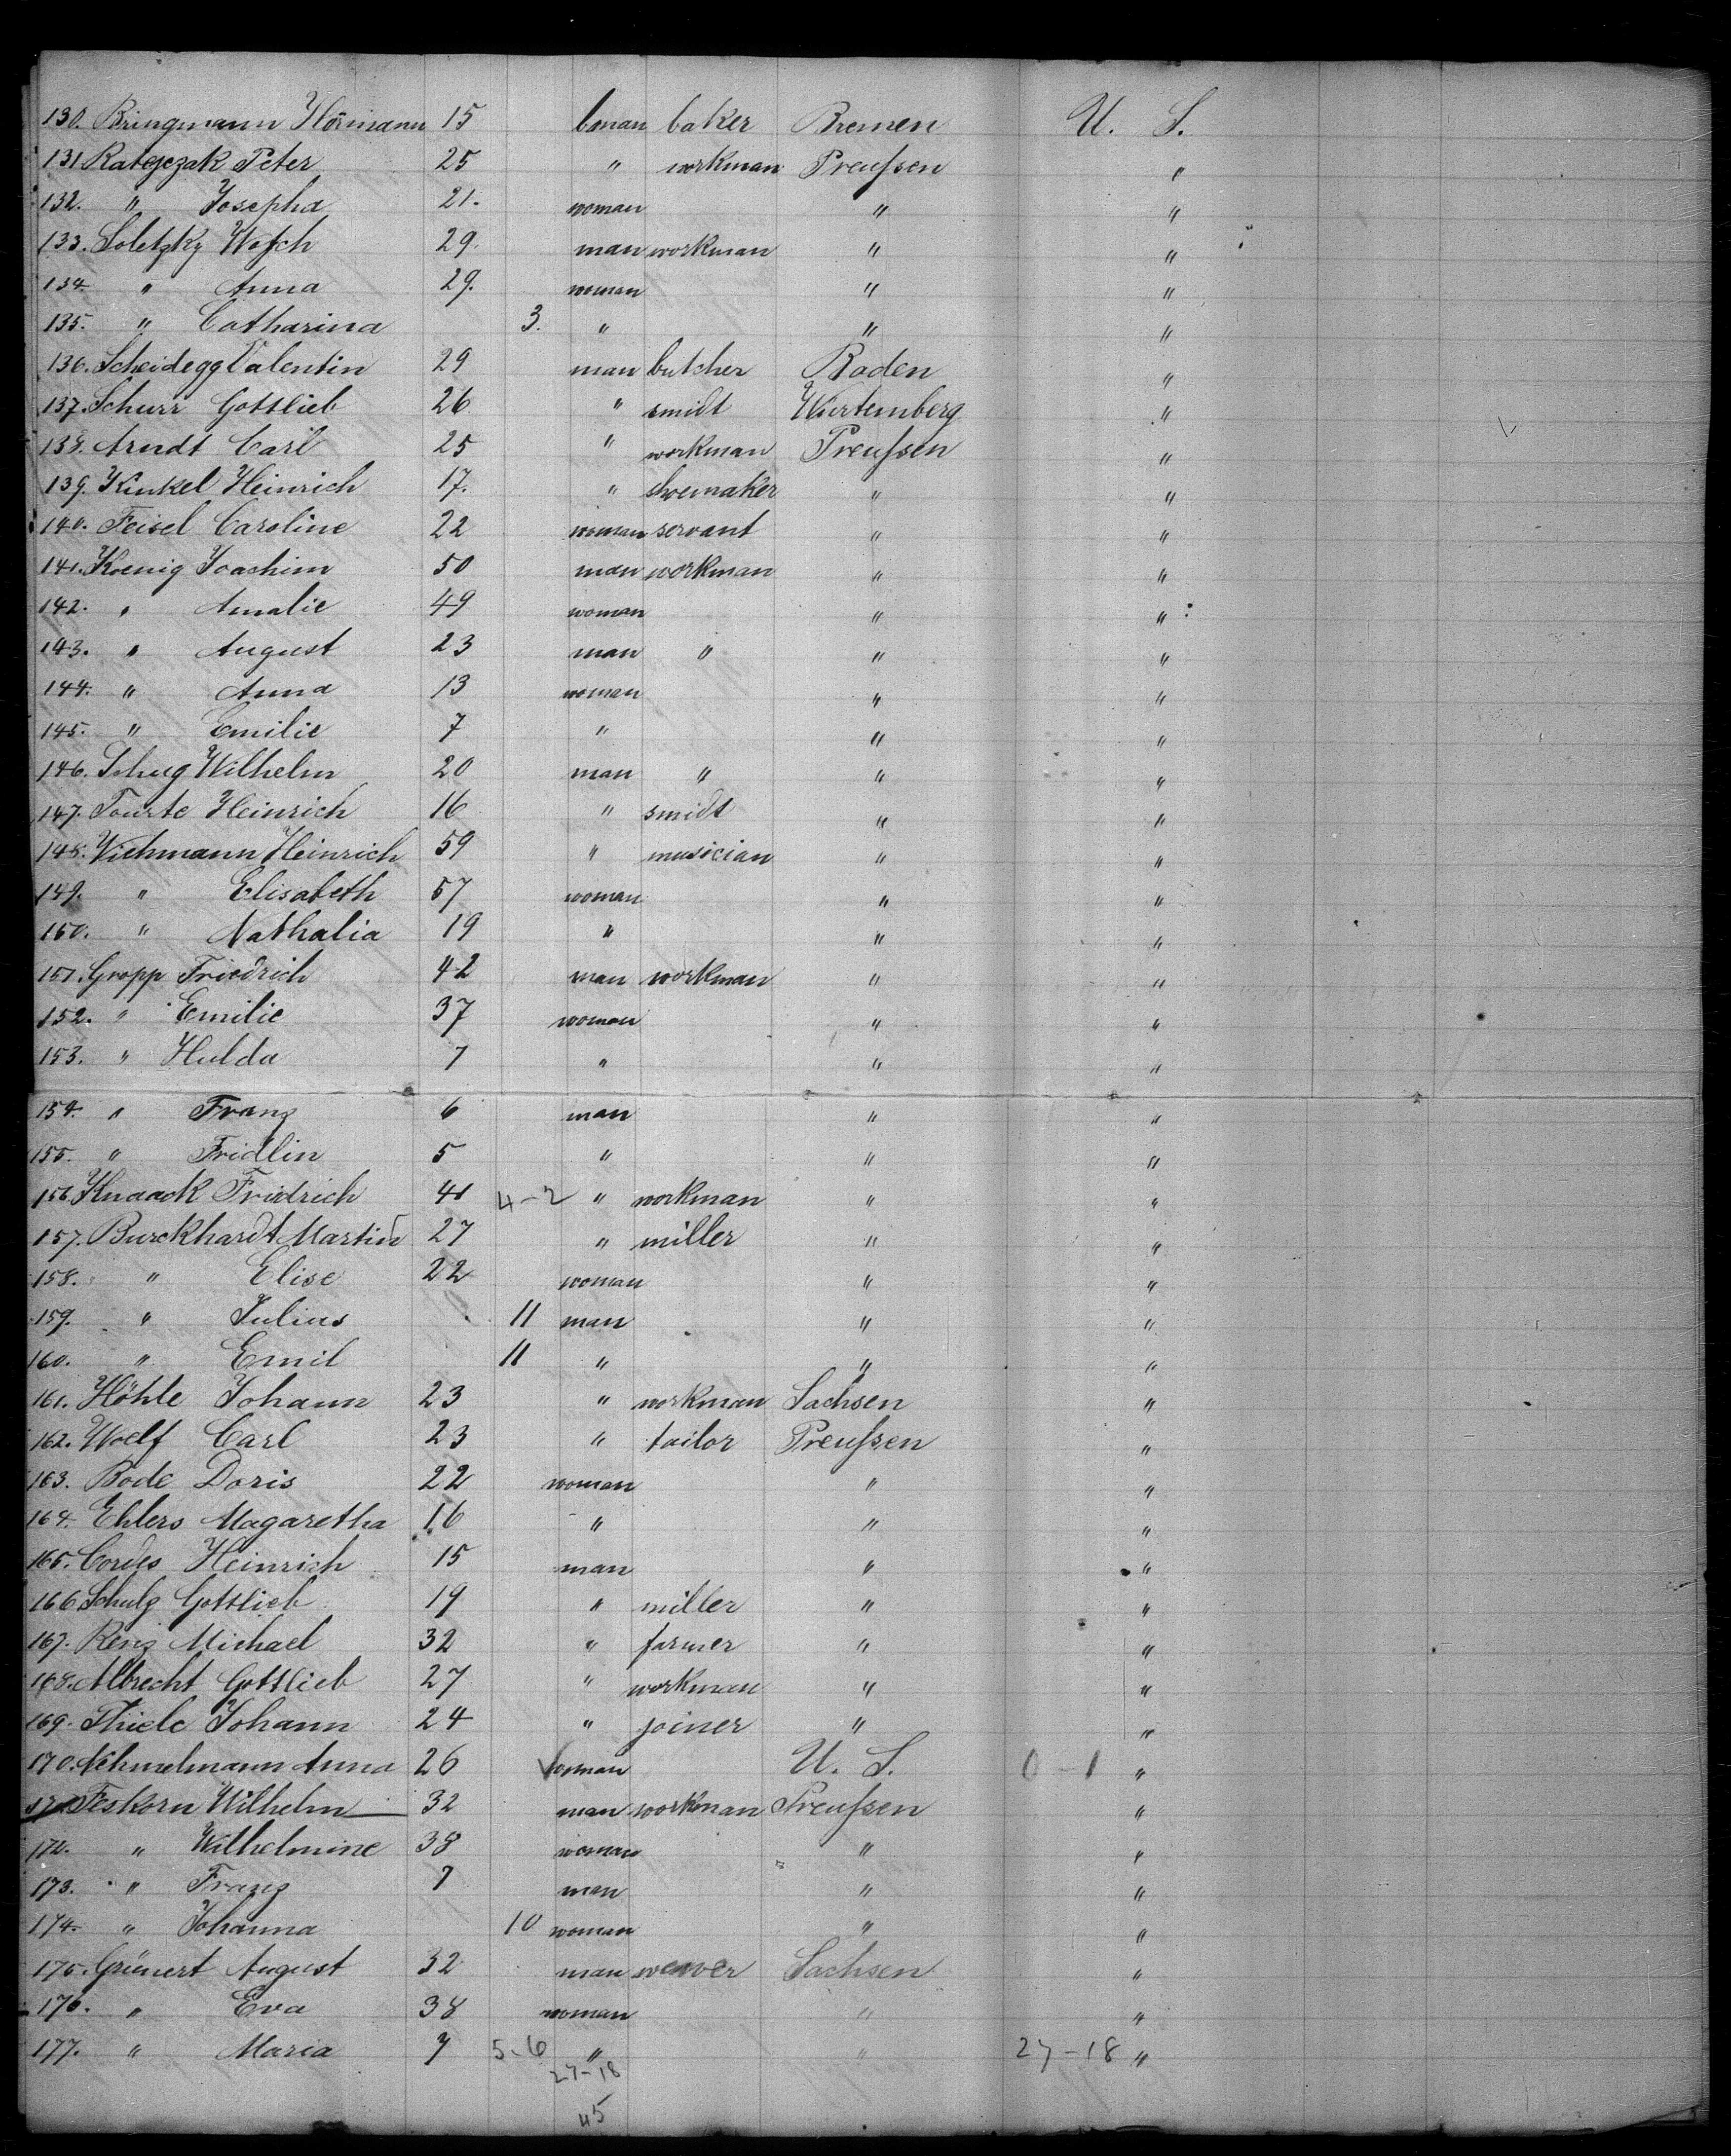 130. Bringmann Hermann 15 man baker Bremen U. S.
131. Ratajczak Peter 25 " workman Preußen "
132. " Josepha 21. woman " "
133. Soletzky Wojch 29. man workman " "
134. " Anna 29. woman " "
135. " Catharina 3. " " "
136. Scheidegg Valentin 29 man butcher Baden "
137. Schurr Gottlieb 26 " smidt Würtemberg "
138. Arndt Carl 25 " workman Preußen "
139. Kinkel Heinrich 17. " shoemaker " "
140. Feisel Caroline 22 woman servant " "
141. Koenig Joachim 50 man workman " "
142. " Amalie 49 woman " "
143. " August 23 man " " "
144. " Anna 13 woman " "
145. " Emilie 7 " " "
146. Schug Wilhelm 20 man " " "
147. Tourte Heinrich 16 " smidt " "
148. Viehmann Heinrich 59 " musician " "
149. " Elisabeth 57 woman " "
150. " Nathalia 19 " " "
151. Gropp Friedrich 42 man workman " "
152. " Emilie 37 woman " "
153. " Hulda 7 " " "
154. " Franz 6 man " "
155. " Fridlin 5 " " "
156. Knaack Fridrich 41 4-2 " workman " "
157. Burckhardt Martin 27 " miller " "
158. " Elise 22 woman " "
159. " Julius 11 man " "
160. " Emil 11 " " "
161. Höhle Johann 23 " workman Sachsen "
162. Woelf Carl 23 " tailor Preußen "
163. Bode Doris 22 woman " "
164. Ehlers Magaretha 16 " " "
165. Cordes Heinrich 15 man " "
166. Schulz Gottlieb 19 " miller " "
167. Renz Michael 32 " farmer " "
168. Albrecht Gottlieb 27 " workman " "
169. Thiele Johann 24 " joiner " "
170. Anna 26 woman U. S. 0-1 "
171. Feskorn Wilhelm 32 man workman Preußen "
172. " Wilhelmine 38 woman " "
173. " Franz 7 man " "
174. " Johanna 10 woman " "
175. Grünert August 32 man weaver Sachsen "
176. " Eva 38 woman " "
177. " Maria 7 5-6 " " 27-18 "
27-18
45